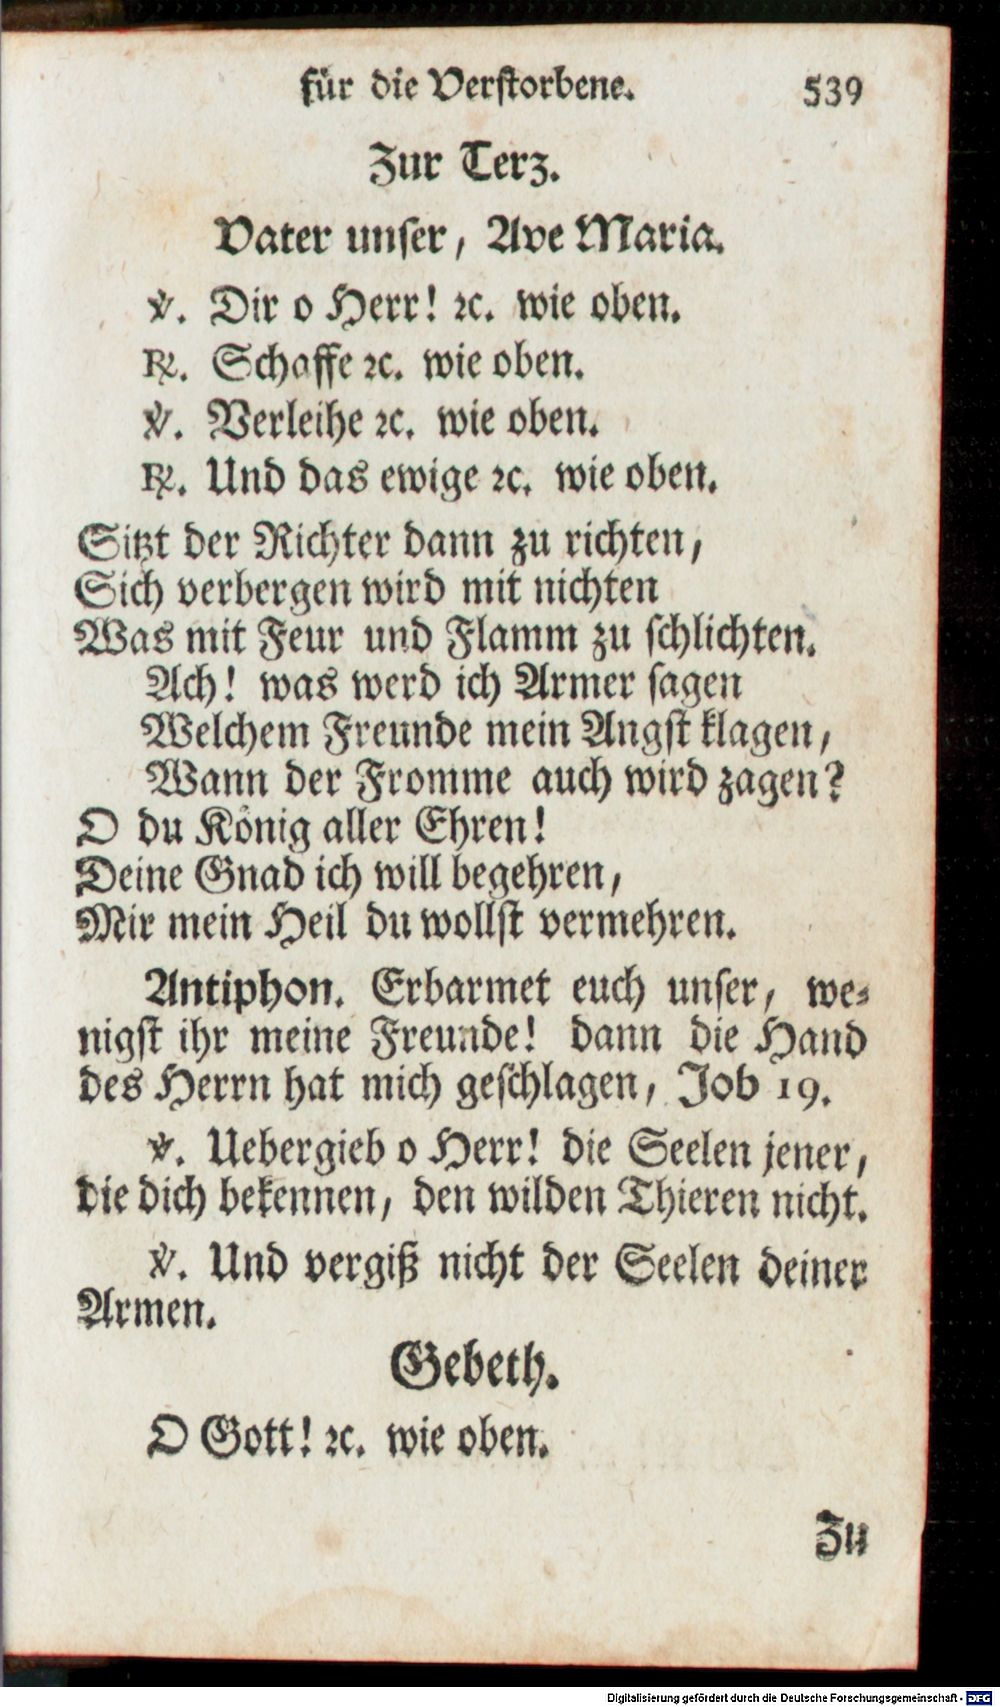 für die Verstorbene. 539
Zur Terz.
Vater unser, Ave Maria.
℣. Dir o Herr! ꝛc. wie oben.
℟. Schaffe ꝛc. wie oben.
℣. Verleihe ꝛc. wie oben.
℟. Und das ewige ꝛc. wie oben.
Sitzt der Richter dann zu richten,
Sich verbergen wird mit nichten
Was mit Feur und Flamm zu schlichten.
Ach! was werd ich Armer sagen
Welchem Freunde mein Angst klagen,
Wann der Fromme auch wird zagen?
O du König aller Ehren!
Deine Gnad ich will begehren,
Mir mein Heil du wollst vermehren.
Antiphon. Erbarmet euch unser, we-
nigst ihr meine Freunde! dann die Hand
des Herrn hat mich geschlagen, Job 19.
℣. Uebergieb o Herr! die Seelen jener,
die dich bekennen, den wilden Thieren nicht.
℣. Und vergiß nicht der Seelen deiner
Armen.
Gebeth.
O Gott! ꝛc. wie oben.
Zu
Digitalisierung gefördert durch die Deutsche Forschungsgemeinschaft - DFG